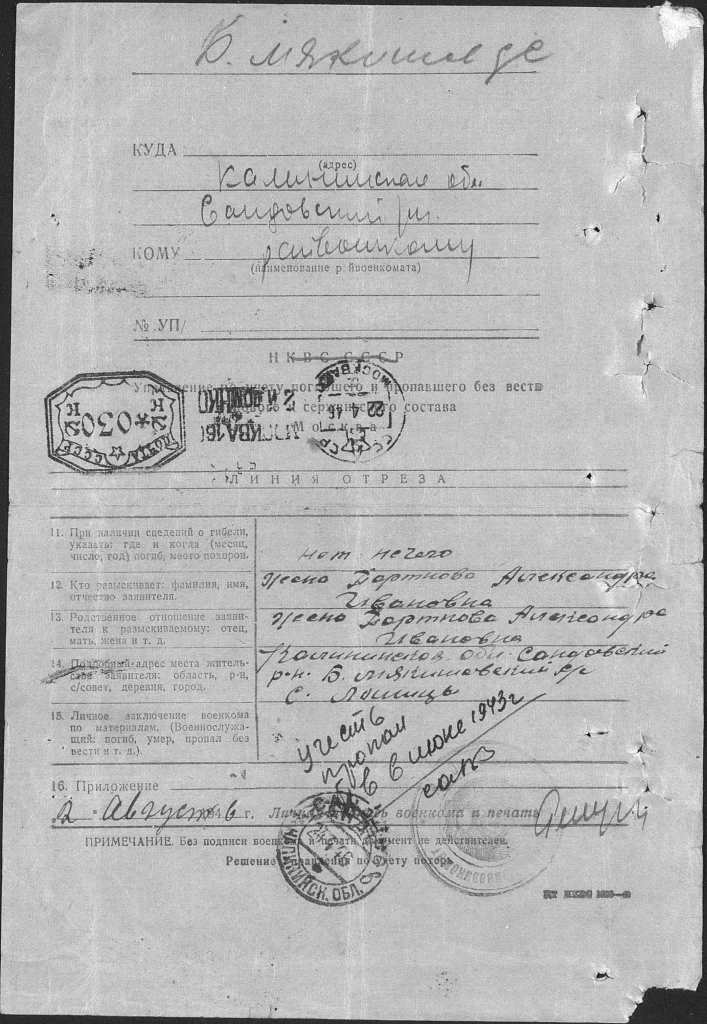 КУДА
(адрес)
Калининская обл.
Сандовский
КОМУ райвоенкому
(наименование р йвоенкомата)
№ УП/
НКВС СССР
Управление по учету погибшего и пропавшего без вести
рядового и сержантского состава
Москва
ПОЧТА СССР
К *030 К
МОСКВА
22.4.4
СССР
МОСКВА 16
ЛИНИЯ ОТРЕЗА
11. При наличии сведений о гибели, указать: где и когда (месяц, число, год) погиб, место похорон.
нет нечего
12. Кто разыскивает: фамилия, имя, отчество заявителя.
жена Александра
Ивановна
13. Родственное отношение заявителя к разыскиваемому: отец, мать, жена и т. д.
жена Александра
Ивановна
14. Подробный адрес места жительства заявителя: область, р-н, с/совет, деревня, город.
Калининская обл. Сандовский
р-н. Б.
с.
15. Личное заключение военкома по материалам. (Военнослужащий: погиб, умер, пропал без вести и т. д.).
учесть
пропал
б/в в июне 1943 г
16. Приложение
2 Август 194 6 г. Личная подпись военкома и печать
ПРИМЕЧАНИЕ. Без подписи военкома и печати документ не действителен.
Решение Управления по учету потерь
КАЛИНИНСК. ОБЛ.